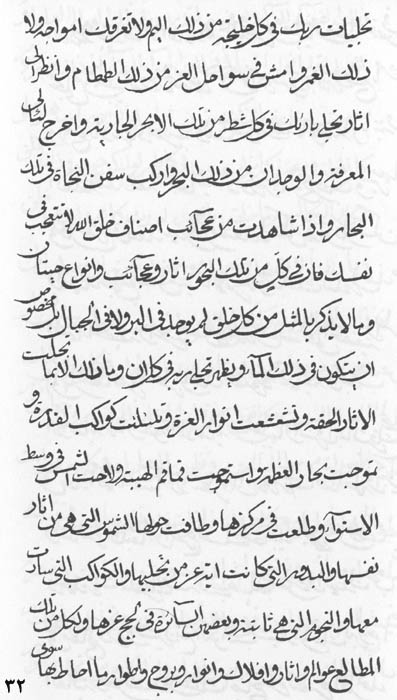 تجليات ربك في كل خليجة من ذلك اليم ولا تغرقك امواجه ولا
ذلك الغمر وامش في سواحل العز من ذلك الطمطام وانظر الى
اثار تجلي بارئك في كل شطر من تلك الابحر الجارية واخرج لئالي
المعرفة والوجدان من ذلك البحر واركب سفن النجاة في تلك
البحار واذا شاهدت من عجائب اصناف خلق الله لا تتعجب في
نفسك فان في كل من تلك البحور اثار وعجائب وانواع حيتان
وما لا يذكر بالمثل من كل خلق لم يوجد في البر ولا في الجبال بل مخصوص
ان يتكون في ذلك الماء ويظهر تجلي ربه في كل ان وما تلك الا تجليات
الاثار الحقة وتشعشعت انوار العزة وتلئلئت كواكب القدرة و
تموجت بحار العظمة واستموجت قماقم الهيبة ولاحت الشمس في وسط
الاستواء وطلعت في مركزها وطافت حولها الشموس التي هي من اثار
نفسها والبدور التي كانت ايته عز من تجليها والكواكب التي سارت
معها والنجوم التي هي ثابتة وبعضهن السائرة في لجج عزها ولكل من تلك
المطالع عوالم واثار وافلاك وانوار وبروج واطوار ما احاط بها سوى
٣٢